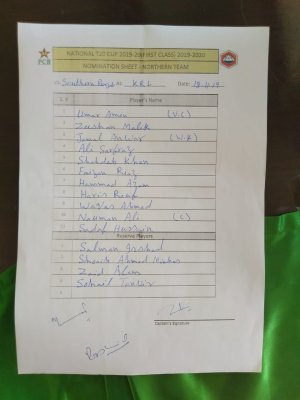 PCB
NATIONAL T20 CUP 2019-20(FIRST CLASS) 2019-2020
NOMINATION SHEET - NORTHERN TEAM
At: KRL Date: 18/11/19
S.# Player's Name
1 Umar Amin (V.C)
2 Zeeshan Malik
3 Jamal Anwar (W.K)
4 Ali Sarfraz
5 Shadab Khan
6 Faizan Riaz
7 Hammad Azam
8 Haris Rauf
9 Waqas Ahmed
10 Nauman Ali (C)
11 Sadaf Hussain
Reserve Players
1 Salman Irshad
2 Shoaib Ahmed Minhas
3 Zaid Alam
4 Sohael Tanvir
5
6
Captain's Signature